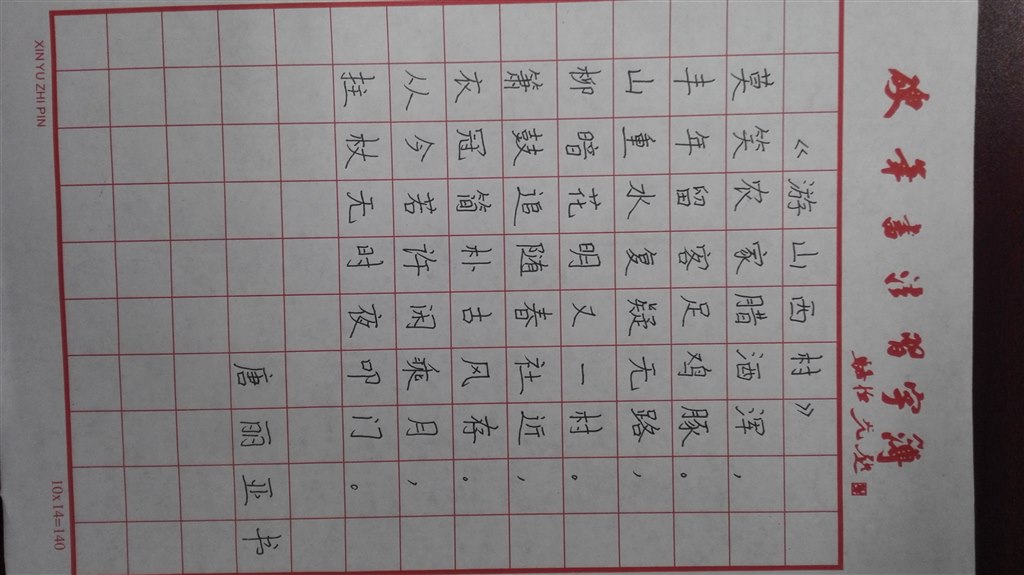 硬笔書法習字簿
《游山西村》
莫笑农家腊酒浑，
丰年留客足鸡豚。
山重水复疑无路，
柳暗花明又一村。
箫鼓追随春社近，
衣冠简朴古风存。
从今若许闲乘月，
拄杖无时夜叩门。
唐丽亚书
XIN YU ZHI PIN
10x14=140